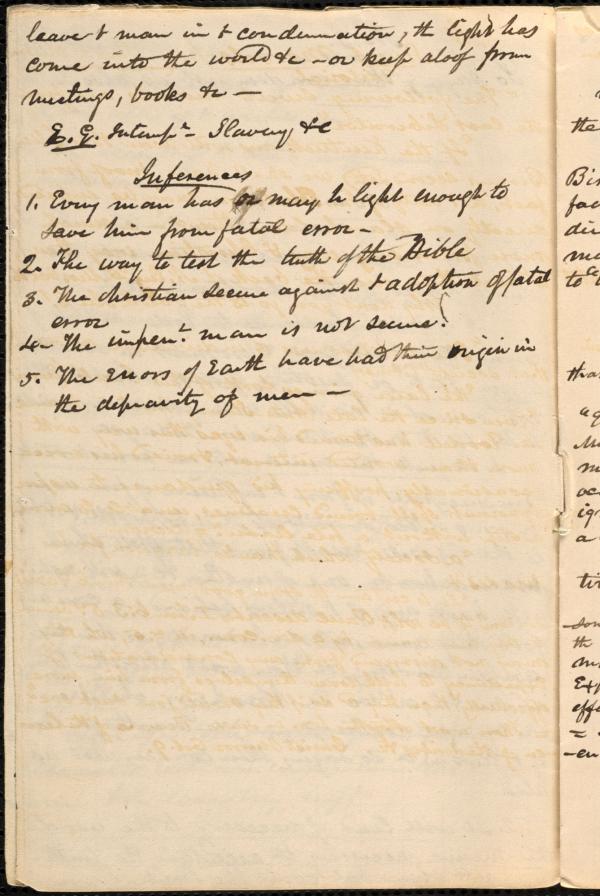 leave t man in t condemnation, th light has
come into the world &c - or keep aloof from
meetings, books &c —
E. G. Intemp^r- Slavery &c
Inferences
1. Every man has or may h light enough to
save him from fatal error -
2. The way to test the truth of the Bible
3. The christian secure against t adoption of fatal
error
4- The impen^t. man is not secure.
5. The errors of Earth have had their origin in
the depravity of men —
the
Bi
fac
to
tha
a
the
eff